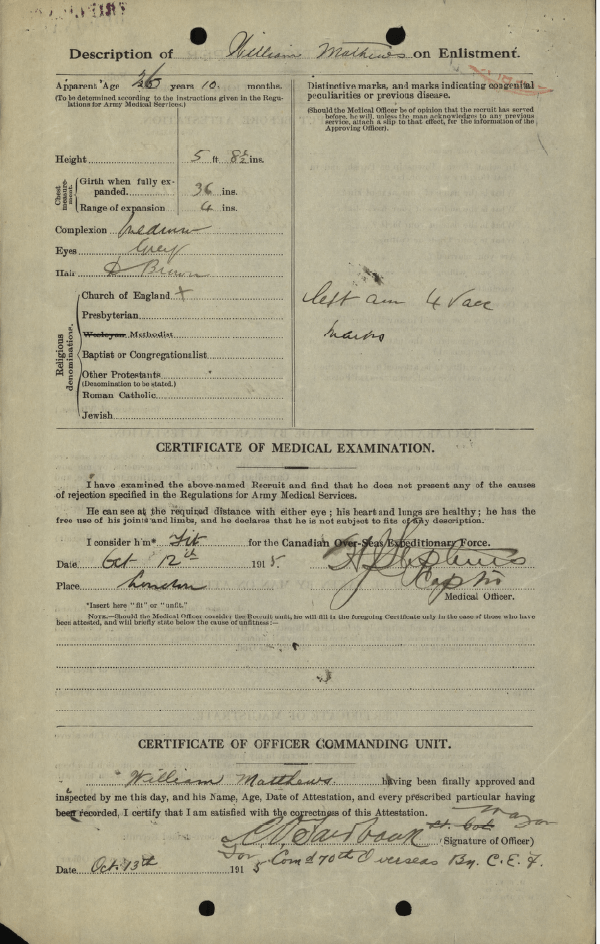 Description of William Mathews on Enlistment.
Apparent Age 26 years 10 months.
(To be determined according to the instructions given in the Regulations for Army Medical Services.)
Distinctive marks, and marks indicating congenital peculiarities or previous disease.
(Should the Medical Officer be of opinion that the recruit has served before, he will, unless the man acknowledges to any previous service, attach a slip to that effect, for the information of the Approving Officer).
Height 5 ft 8½ ins.
Chest measurement.
Girth when fully expanded. 36 ins.
Range of expansion 4 ins.
Complexion medium
Eyes Grey
Hair D Brown
Religious denominations.
Church of England +
Presbyterian
Wesleyan Methodist
Baptist or Congregationalist
Other Protestants
(Denomination to be stated.)
Roman Catholic
Jewish
left arm 4 Vacc
marks
CERTIFICATE OF MEDICAL EXAMINATION.
I have examined the above-named Recruit and find that he does not present any of the causes
of rejection specified in the Regulations for Army Medical Services.
He can see at the required distance with either eye; his heart and lungs are healthy; he has the
free use of his joints and limbs, and he declares that he is not subject to fits of any description.
I consider him* Fit for the Canadian Over-Seas Expeditionary Force.
Date Oct 12th 1915
Place London
Capt
Medical Officer.
*Insert here "fit" or "unfit."
NOTE.—Should the Medical Officer consider the Recruit unfit, he will fill in the foregoing Certificate only in the case of those who have
been attested, and will briefly state below the cause of unfitness:—
CERTIFICATE OF OFFICER COMMANDING UNIT.
William Matthews having been finally approved and
inspected by me this day, and his Name, Age, Date of Attestation, and every prescribed particular having
been recorded, I certify that I am satisfied with the correctness of this Attestation.
Major
Lt. Col.
(Signature of Officer)
For Comd 70th Overseas Bn. C.E.F.
Date Oct. 13th 1915